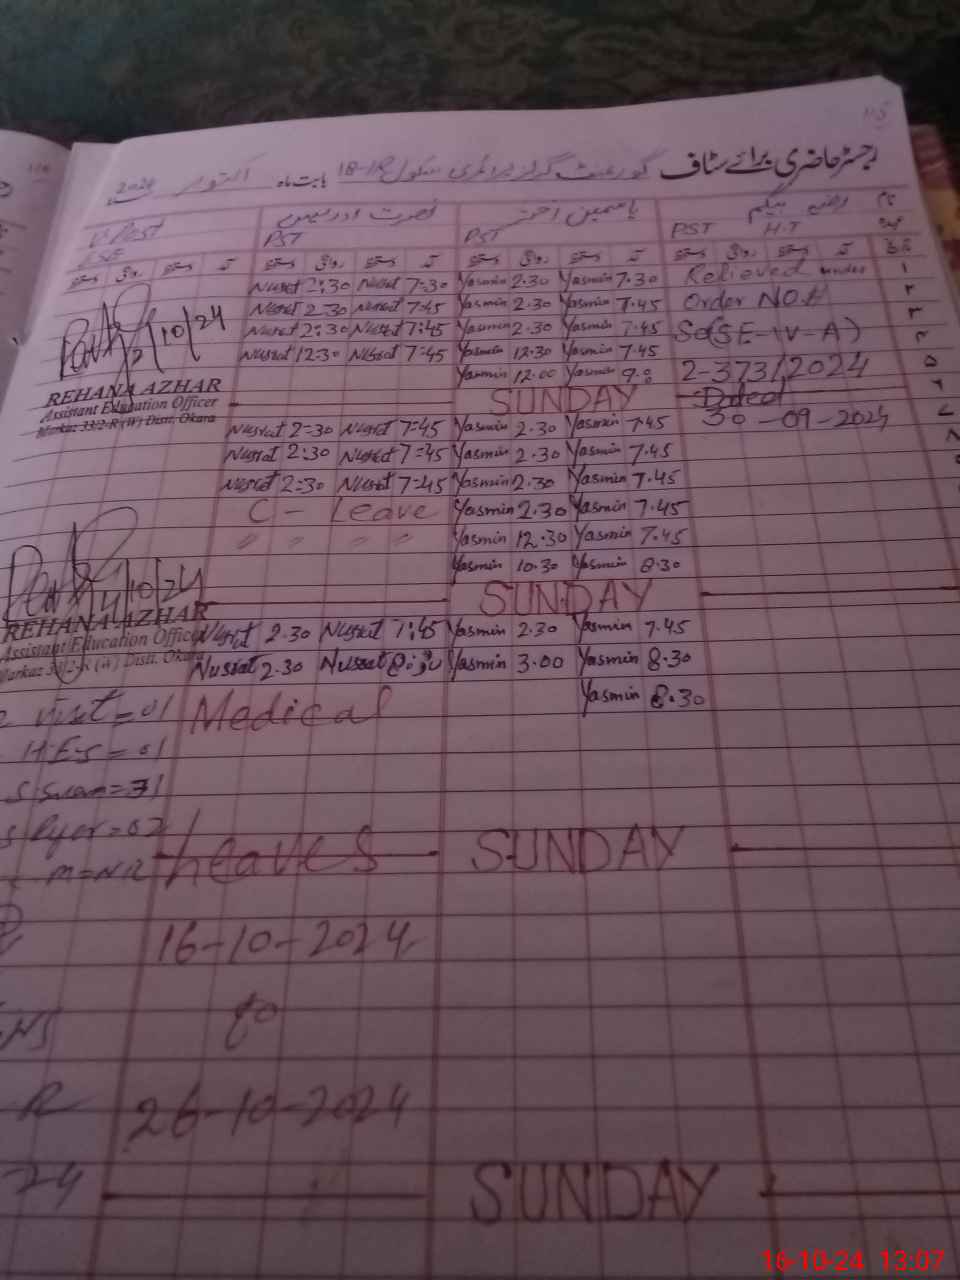 رجسٹر حاضری برائے سٹاف گورنمنٹ گرلز پرائمری سکول 18-1R بابت ماہ اکتوبر 2024
نام رضیہ بیگم یاسمین اختر نصرت ادریس
PST H.T PST PST
ESE
Nusrat 2:30 Nusrat 7=30 Yasmin 2.30 Yasmin 7.30 Relieved under
Nusrat 2 30 Nusrat 7=45 Yasmin 2.30 Yasmin 7.45 Order NO.
Nusrat 2:30 Nusrat 7:45 Yasmin 2.30 Yasmin 7.45 So(SE-IV-A)
Nusrat 12=30 Nusrat 7=45 Yasmin 12.30 Yasmin 7.45
Yasmin 12.00 Yasmin 9.0 2-373/2024
10/24
REHANA AZHAR
Assistant Education Officer
Markaz 33/2-R (W) Distt. Okara
SUNDAY Dated
Nusrat 2=30 Nusrat 7=45 Yasmin 2.30 Yasmin 7.45 30-09-2024
Nusrat 2:30 Nusrat 7=45 Yasmin 2.30 Yasmin 7.45
Nusrat 2=30 Nusrat 7=45 Yasmin 2.30 Yasmin 7.45
C - Leave Yasmin 2.30 Yasmin 7.45
" " " " Yasmin 12.30 Yasmin 7.45
Yasmin 10.30 Yasmin 8.30
10/24
SUNDAY
REHANA AZHAR
Assistant Education Officer
Markaz 33/2-R (W) Distt. Okara
Nusrat 2.30 Nusrat 7:45 Yasmin 2.30 Yasmin 7.45
Nusrat 2.30 Nusrat 8:30 Yasmin 3.00 Yasmin 8.30
Yasmin 8.30
visit = 01 Medical
H.E-S = 01
= 31
= 02
m = NR
Leaves SUNDAY
16-10-2024
to
R
26-10-2024
24
SUNDAY
16-10-24 13:07